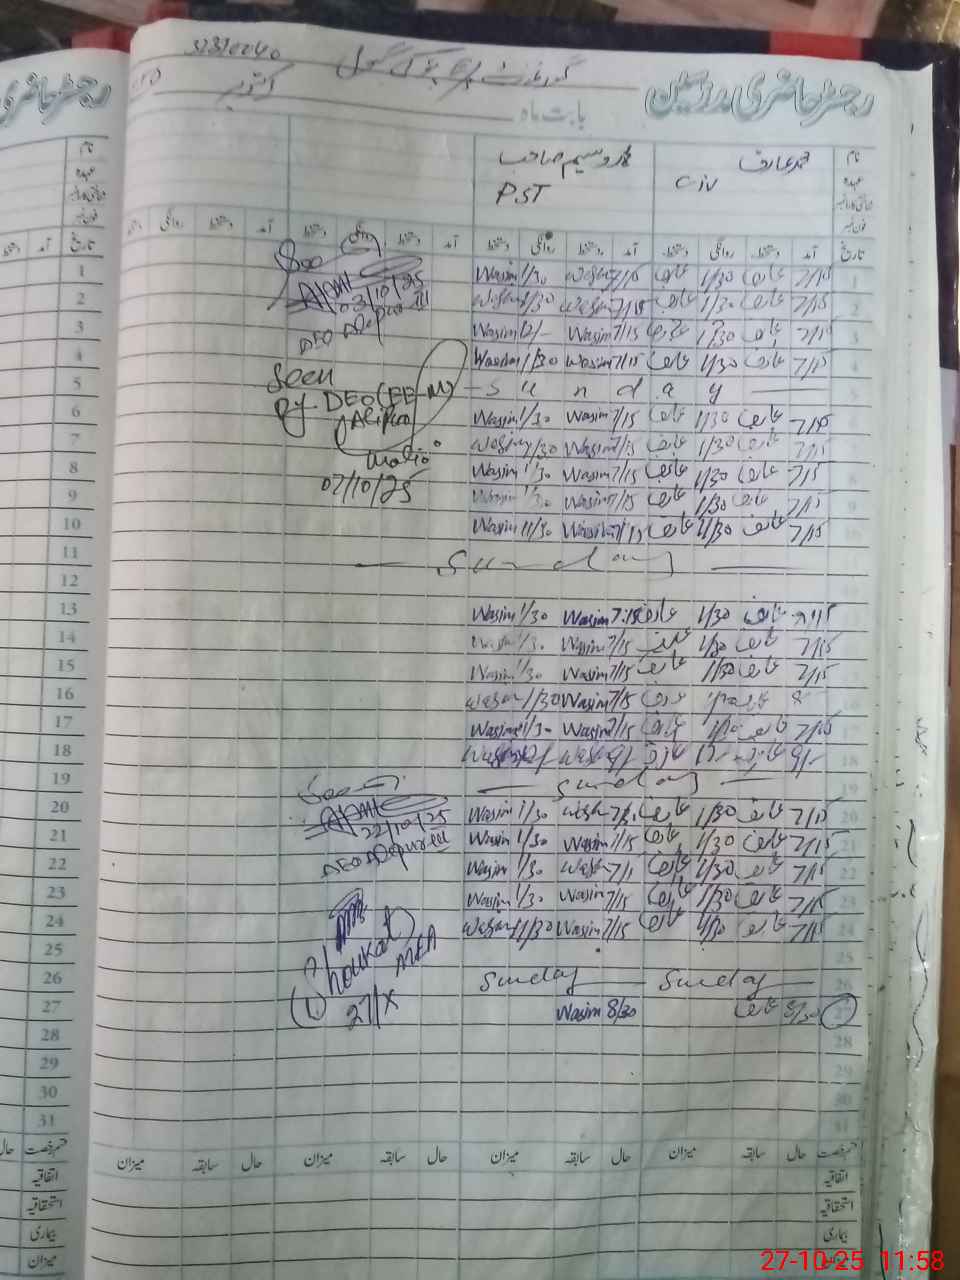 32320240 گورنمنٹ سکول
رجسٹر حاضری مدرسین
بابت ماہ اکتوبر
نام محمد عارف وسیم صاحب
عہدہ civ PST
فون نمبر
تاریخ آمد دستخط روانگی دستخط آمد دستخط روانگی دستخط آمد دستخط روانگی دستخط آمد دستخط روانگی
1 7/15 عارف 1/30 عارف 7/15 Wasim 1/30 Wasim
2 7/15 عارف 1/30 عارف 7/15 Wasim 1/30 Wasim
03/10/25
3 7/15 عارف 1/30 عارف 7/15 Wasim 12/- Wasim
4 7/15 عارف 1/30 عارف 7/15 Wasim 1/30 Wasim
Seen
5 - Sunday -
By DEO (EE-M)
Alipur
6 7/15 عارف 1/30 عارف 7/15 Wasim 1/30 Wasim
7 7/15 عارف 1/30 عارف 7/15 Wasim 1/30 Wasim
8 7/15 عارف 1/30 عارف 7/15 Wasim 1/30 Wasim
07/10/25
9 7/15 عارف 1/30 عارف 7/15 Wasim 1/30 Wasim
10 7/15 عارف 1/30 عارف 7/15 Wasim 1/30 Wasim
11
— Sunday —
12
13 7/15 عارف 1/30 عارف 7:15 Wasim 1/30 Wasim
14 7/15 عارف 1/30 عارف 7/15 Wasim 1/30 Wasim
15 7/15 عارف 1/30 عارف 7/15 Wasim 1/30 Wasim
16 8 عارف عارف 7/15 Wasim 1/30 Wasim
17 7/15 عارف عارف 7/15 Wasim 1/30 Wasim
18 9/- عارف عارف 9/ Wasim Wasim
19 — Sunday —
20 7/15 عارف 1/30 عارف Wasim 1/30 Wasim
22/10/25
21 7/15 عارف 1/30 عارف 7/15 Wasim 1/30 Wasim
22 7/15 عارف 1/30 عارف Wasim 1/30 Wasim
23 7/15 عارف 1/30 عارف 7/15 Wasim 1/30 Wasim
24 7/15 عارف 1/30 عارف 7/15 Wasim 1/30 Wasim
Shoukat
AEA
25
26 Sunday — Sunday —
27 8/30 عارف 8/30 Wasim
27/X
28
29
30
31
قسم رخصت حال سابقہ میزان حال سابقہ میزان حال سابقہ میزان
اتفاقیہ
استحقاقیہ
بیماری
میزان
27-10-25 11:58